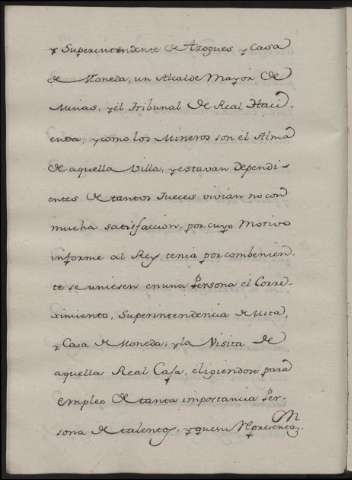 y Superintendente de Azogues y Casa
de Moneda, un Alcalde Mayor de
Minas, y el Tribunal de Real Haci
enda, y como los Mineros son el Alma
de aquella Villa, y estavan dependi-
entes de tantos Jueces vivian no con
mucha satisfaccion, por cuyo Motivo
informe al Rey, tenia por combenien-
te se uniesen en una Persona el Corre-
ximiento, Superintendencia de Mita,
y Casa de Moneda, y la Visita de
aquella Real Caja, eligiendose para
empleo de tanta importancia Per-
sona de talentos, y quien